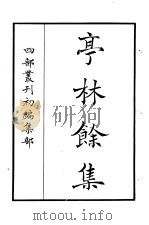 亭林餘集
四部叢刊初編集部
mtoou.info